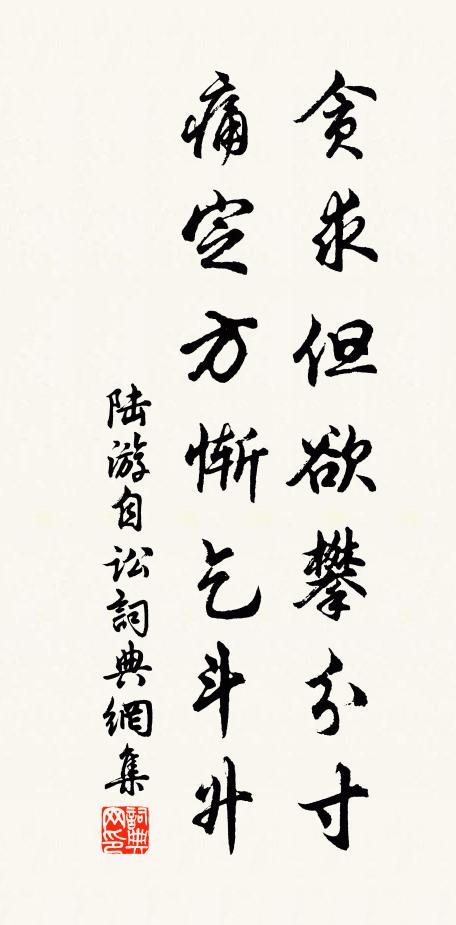 贪求但欲攀分寸
痛定方惭乞斗升
陆游自讼詞典網集
詞典网印